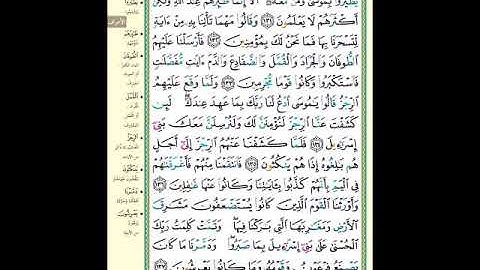 يَطَّيَّرُوا۟ بِمُوسَىٰ وَمَن مَّعَهُۥٓ ۗ أَلَآ إِنَّمَا طَـٰٓئِرُهُمْ عِندَ ٱللَّهِ وَلَـٰكِنَّ
أَكْثَرَهُمْ لَا يَعْلَمُونَ ١٣١ وَقَالُوا۟ مَهْمَا تَأْتِنَا بِهِۦ مِنْ ءَايَةٍ
لِّتَسْحَرَنَا بِهَا فَمَا نَحْنُ لَكَ بِمُؤْمِنِينَ ١٣٢ فَأَرْسَلْنَا عَلَيْهِمُ
ٱلطُّوفَانَ وَٱلْجَرَادَ وَٱلْقُمَّلَ وَٱلضَّفَادِعَ وَٱلدَّمَ ءَايَـٰتٍ مُّفَصَّلَـٰتٍ
فَٱسْتَكْبَرُوا۟ وَكَانُوا۟ قَوْمًا مُّجْرِمِينَ ١٣٣ وَلَمَّا وَقَعَ عَلَيْهِمُ
ٱلرِّجْزُ قَالُوا۟ يَـٰمُوسَى ٱدْعُ لَنَا رَبَّكَ بِمَا عَهِدَ عِندَكَ ۖ لَئِن
كَشَفْتَ عَنَّا ٱلرِّجْزَ لَنُؤْمِنَنَّ لَكَ وَلَنُرْسِلَنَّ مَعَكَ بَنِىٓ
إِسْرَٰٓءِيلَ ١٣٤ فَلَمَّا كَشَفْنَا عَنْهُمُ ٱلرِّجْزَ إِلَىٰٓ أَجَلٍ
هُم بَـٰلِغُوهُ إِذَا هُمْ يَنكُثُونَ ١٣٥ فَٱنتَقَمْنَا مِنْهُمْ فَأَغْرَقْنَـٰهُمْ
فِى ٱلْيَمِّ بِأَنَّهُمْ كَذَّبُوا۟ بِـَٔايَـٰتِنَا وَكَانُوا۟ عَنْهَا غَـٰفِلِينَ ١٣٦
وَأَوْرَثْنَا ٱلْقَوْمَ ٱلَّذِينَ كَانُوا۟ يُسْتَضْعَفُونَ مَشَـٰرِقَ
ٱلْأَرْضِ وَمَغَـٰرِبَهَا ٱلَّتِى بَـٰرَكْنَا فِيهَا ۖ وَتَمَّتْ كَلِمَتُ رَبِّكَ
ٱلْحُسْنَىٰ عَلَىٰ بَنِىٓ إِسْرَٰٓءِيلَ بِمَا صَبَرُوا۟ ۖ وَدَمَّرْنَا مَا كَانَ
يَصْنَعُ فِرْعَوْنُ وَقَوْمُهُۥ وَمَا كَانُوا۟ يَعْرِشُونَ ١٣٧